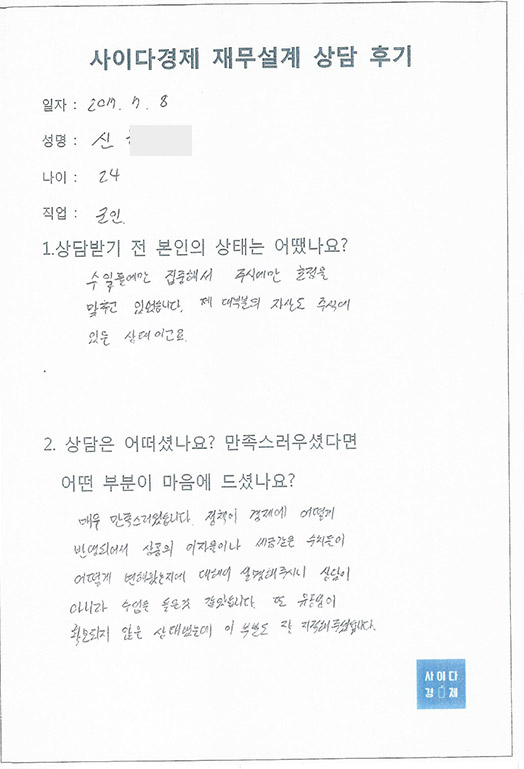 사이다경제 재무설계 상담 후기
일자 : 2017. 7. 8
성명 : 신
나이 : 24
직업 : 군인.
1.상담받기 전 본인의 상태는 어땠나요?
수익률에만 집중해서 주식에만 초점을
맞추고 있었습니다. 제 대부분의 자산도 주식에
있는 상태이고요.
2. 상담은 어떠셨나요? 만족스러우셨다면
어떤 부분이 마음에 드셨나요?
매우 만족스러웠습니다. 정책이 경제에 어떻게
반영되어서 상품의 이자율이나 세금같은 수치들이
어떻게 변해왔는지에 대해서 설명해주시니 상담이
아니라 수업을 들은것 같았습니다. 또 유동성이
확보되지 않은 상태였는데 이 부분도 잘 지적해주셨습니다.
사이다
경제